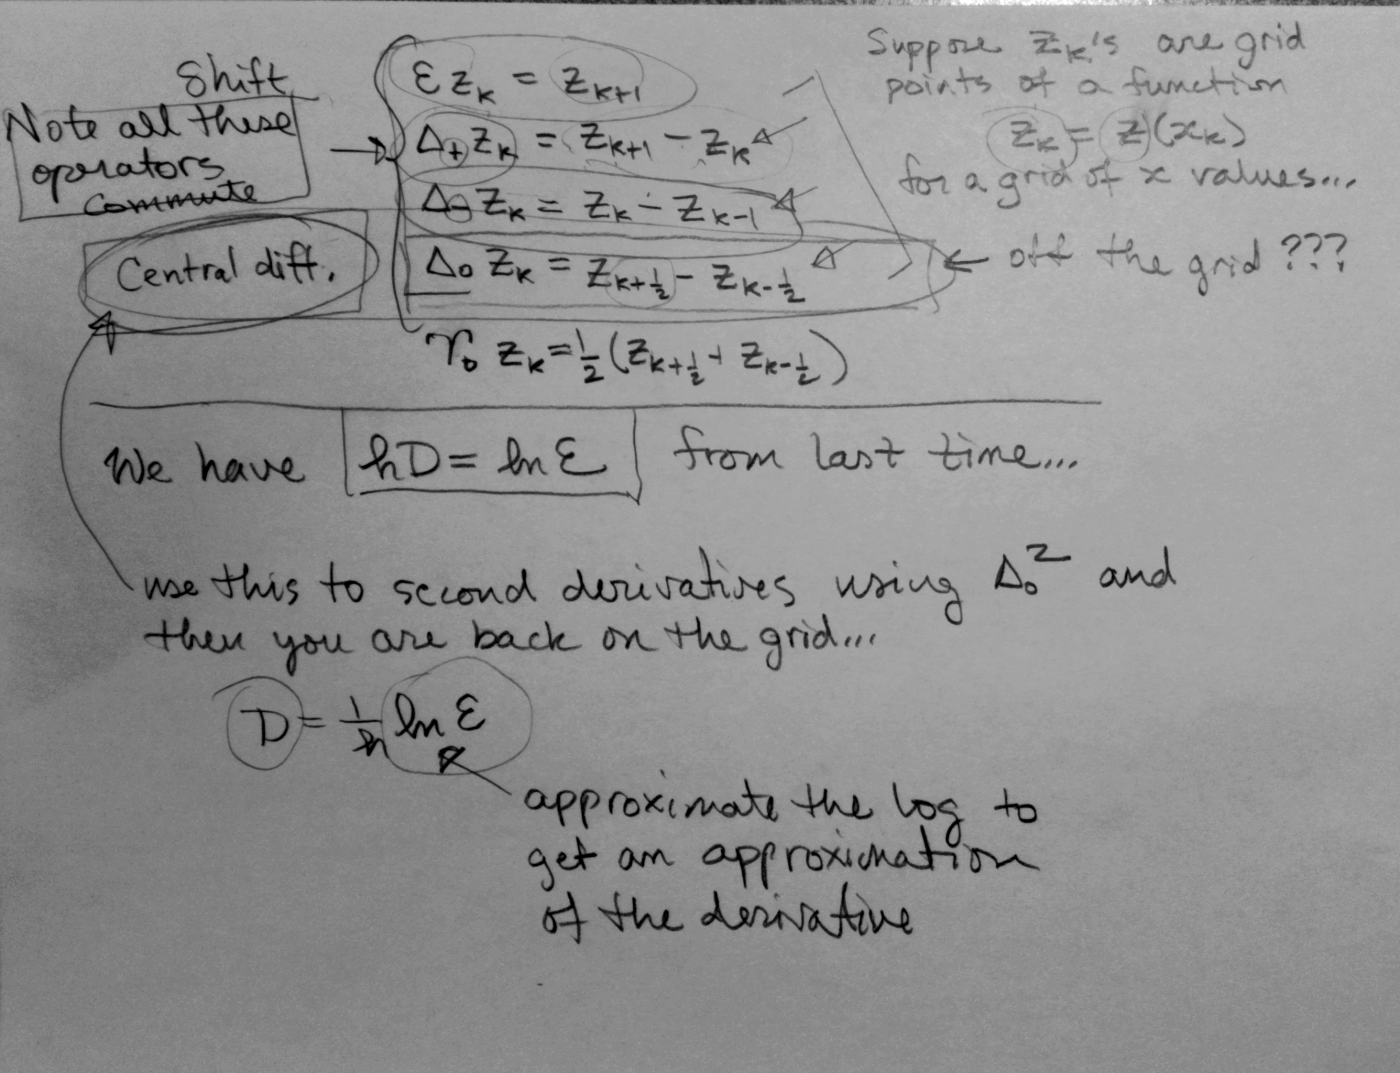 Shift
Note all these
operators
commute
Ɛ z_k = z_{k+1}
Δ_+ z_k = z_{k+1} - z_k
Δ_- z_k = z_k - z_{k-1}
Central diff.
Δ_0 z_k = z_{k+½} - z_{k-½}
ϒ_0 z_k = ½ (z_{k+½} + z_{k-½})
Suppose z_k's are grid
points of a function
z_k = z(x_k)
for a grid of x values...
← off the grid ???
We have hD = ln Ɛ from last time...
use this to second derivatives using Δ_0² and
then you are back on the grid...
D = 1/h ln Ɛ
approximate the log to
get an approximation
of the derivative